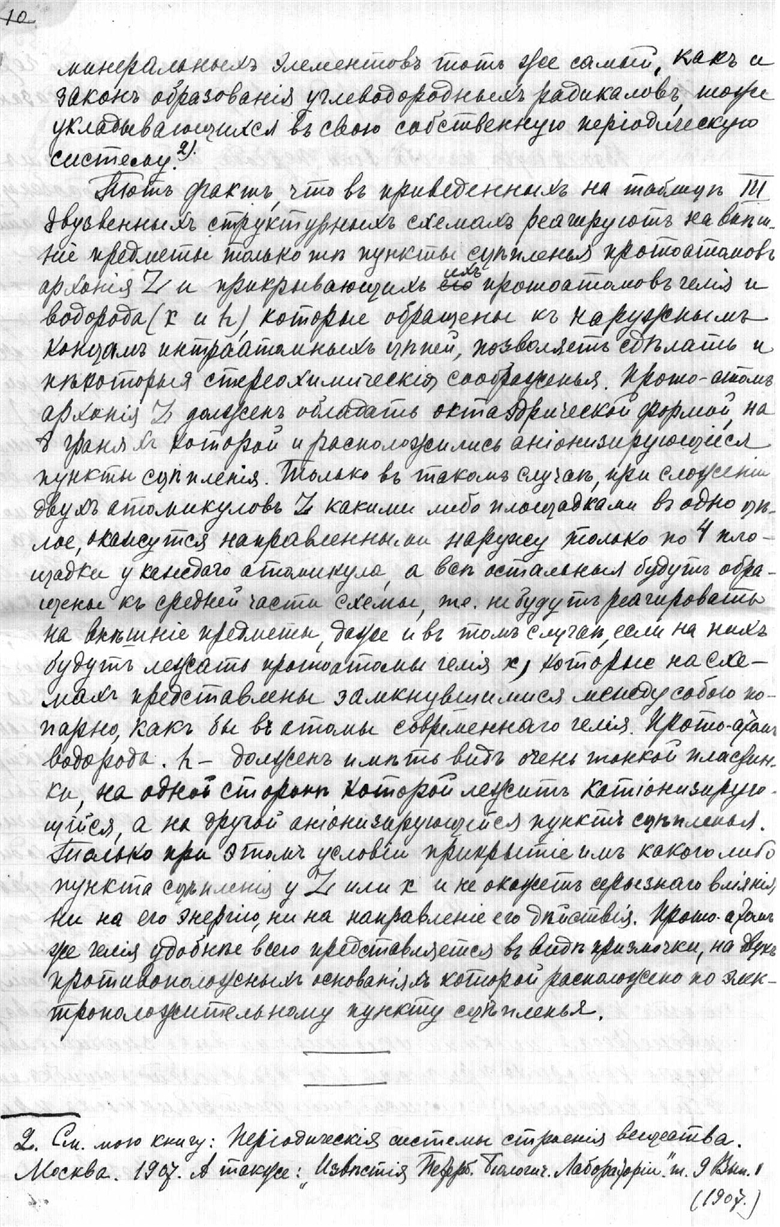 10
минеральныхъ элементовъ тотъ же самый, какъ и
законъ образованія углеводородныхъ радикаловъ, тоже
укладывающихся въ свою собственную періодическую
систему.2)
Тотъ фактъ, что въ приведенныхъ на таблицѣ III
двузвенныхъ структурныхъ схемахъ реагируютъ на внѣш-
ніе предметы только тѣ пункты сцѣпленья протоатомовъ
архонія Z и прикрывающихъ ихъ протоатомовъ гелія и
водорода (x и h), которые обращены къ наружнымъ
концамъ интраатомныхъ цѣпей, позволяетъ сдѣлать и
нѣкоторыя стереохимическія соображенья. Прото-атомъ
архонія Z долженъ обладать октаэдрической формой, на
8 граняхъ которой и расположились аніонизирующіеся
пункты сцѣпленія. Только въ такомъ случаѣ, при сложеніи
двухъ атомикуловъ Z какими либо площадками въ одно цѣ-
лое, окажутся направленными наружу только по 4 пло-
щадки у каждаго атомикула, а всѣ остальныя будутъ обра-
щены къ средней части схемы, т.е. не будутъ реагировать
на внѣшніе предметы, даже и въ томъ случаѣ, если на нихъ
будутъ лежать протоатомы гелія x, которые на схе-
махъ представлены замкнувшимися между собою по-
парно, какъ бы въ атомы современнаго гелія. Прото-атомъ
водорода. h — долженъ имѣть видъ очень тонкой пластин-
ки, на одной сторонѣ которой лежитъ катіонизирую-
щійся, а на другой аніонизирующійся пунктъ сцѣпленья.
Только при этомъ условіи прикрытіе имъ какого либо
пункта сцѣпленія у Z или x и не окажетъ серьезнаго вліянія
ни на его энергію, ни на направленіе его дѣйствія. Прото-атомъ
же гелія удобнѣе всего представляется въ видѣ призмочки, на двухъ
противоположныхъ основаніяхъ которой расположено по элек-
троположительному пункту сцѣпленья.
2. См. мою книгу: Періодическія системы строенія вещества.
Москва. 1907. А также: "Извѣстія Петерб. Біологич. Лабораторіи." т. 9 Вып. 1
(1907.)